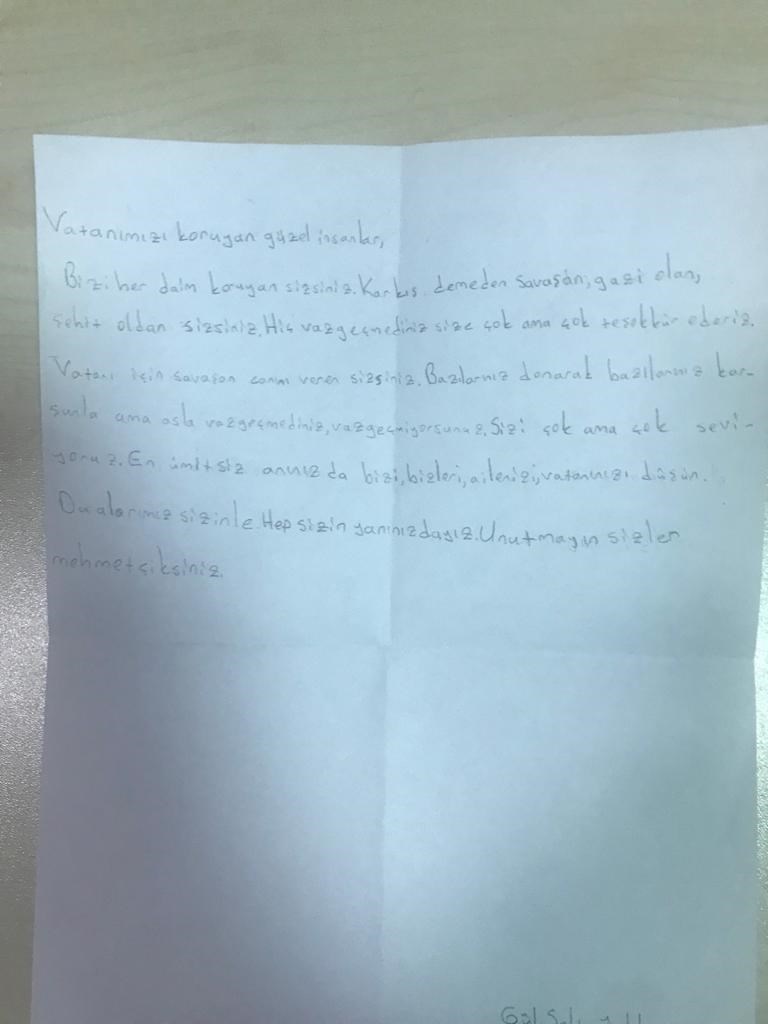 Vatanımızı koruyan güzel insanlar,
Bizi her daim koruyan sizsiniz. Kar kış demeden savaşan, gazi olan,
şehit oldan sizsiniz. Hiç vazgeçmediniz size çok ama çok teşekkür ederiz.
Vatanı için savaşan canını veren sizsiniz. Bazılarınız donarak bazılarınız kur-
şunla ama asla vazgeçmediniz, vazgeçmiyorsunuz. Sizi çok ama çok sevi-
yoruz. En ümitsiz anınız da bizi, bizleri, ailenizi, vatanınızı düşün.
Dualarımız sizinle. Hep sizin yanınızdayız. Unutmayın sizler
mehmetçiksiniz.